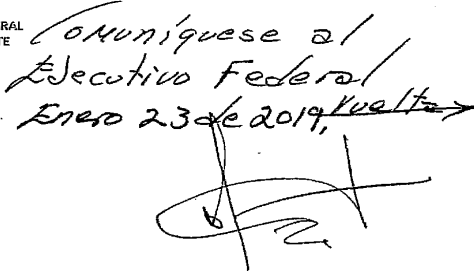 RAL
TE
Comuníquese al
Ejecutivo Federal
Enero 23 de 2019, Vuelta